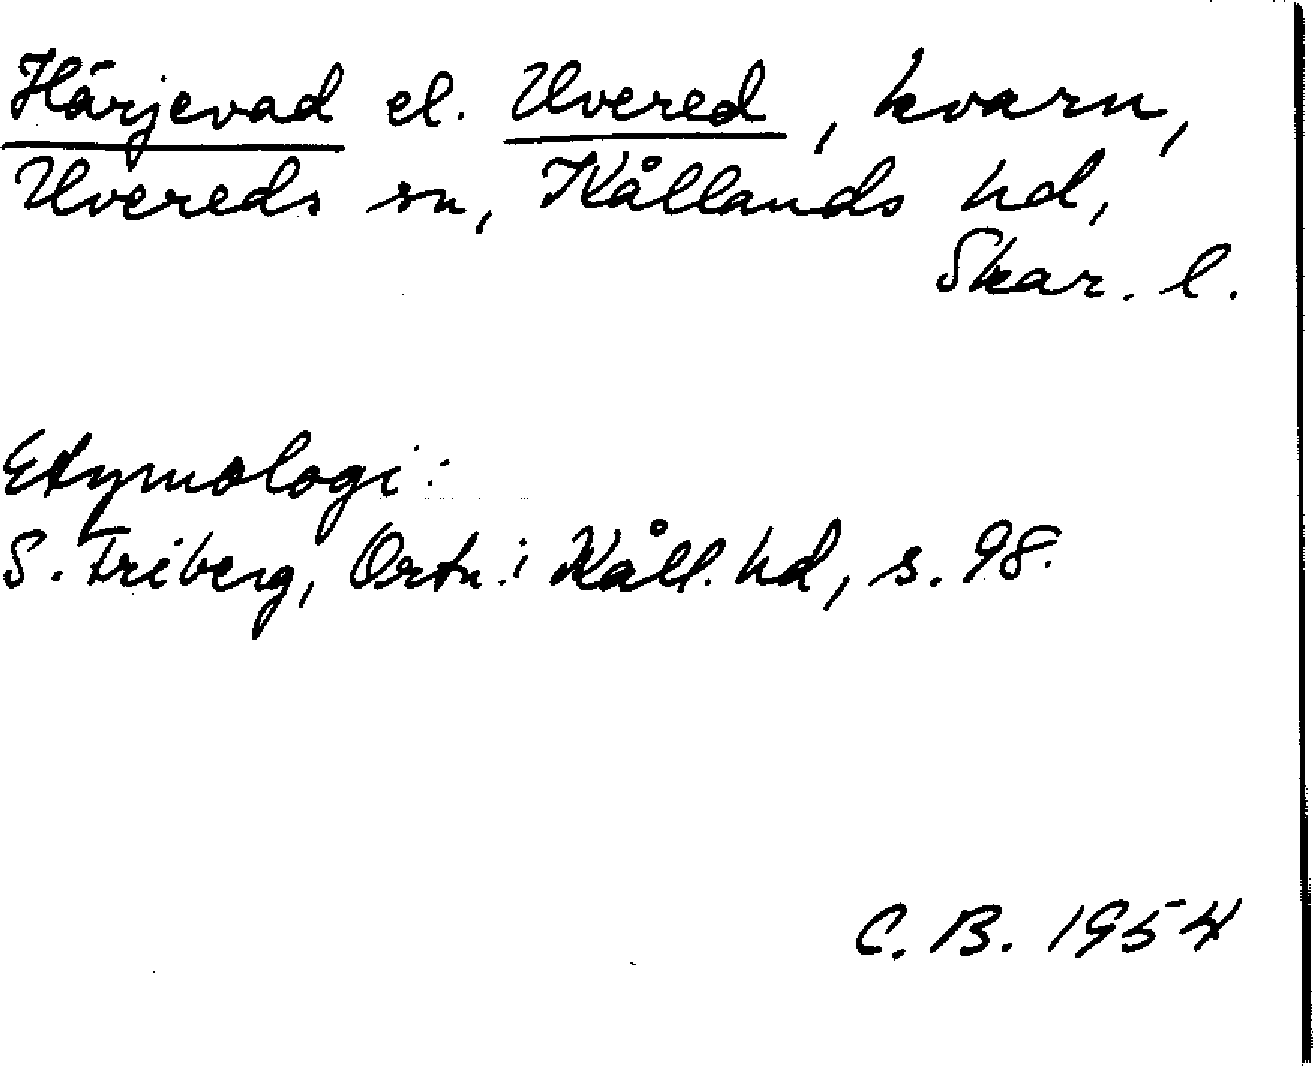 Härjevad el. Uvered, kvarn,
Uvereds sn, Kållands hd,
Skar. l.
Etymologi:
S. Friberg, Ortn. i Kåll. hd, s. 98.
C. B. 1954